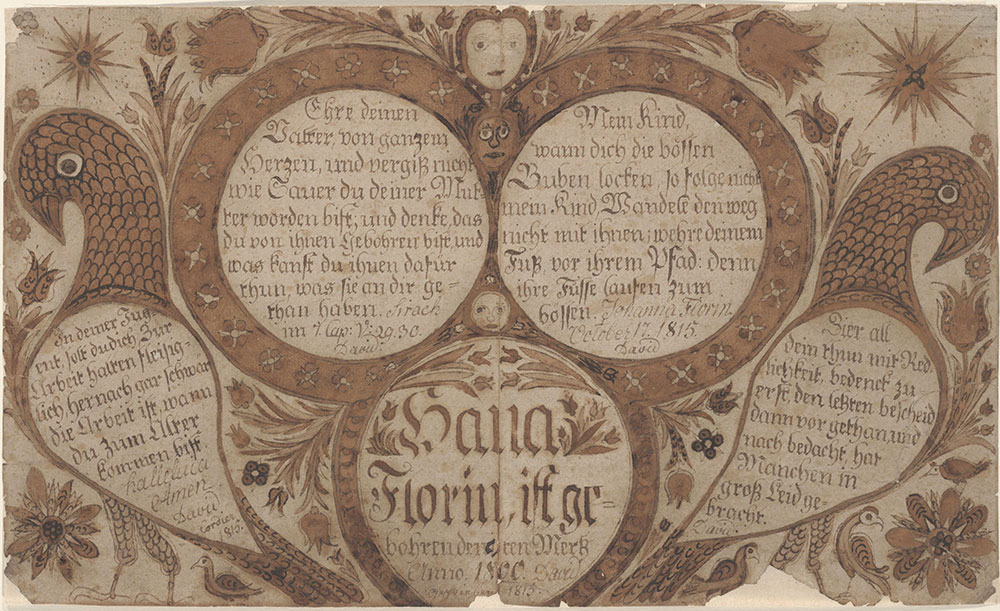 Ehre deinen
Vatter, von ganzem
Herzen, und vergiß nicht
wie Sauer du deiner Mut-
ter worden bist, und denke, das
du von ihnen Gebohren bist, und
was kanst du ihnen dafür
thun, was sie an dir ge-
than haben. Sirach
im 7 Cap: V: 29. 30.
David.
Mein Kind,
wann dich die bössen
Buben locken, so folge nicht
mein Kind, Wandele den weg
nicht mit ihnen; wehre deinem
Fuß, vor ihrem Pfad: denn
ihre Füsse laufen zum
bössen. Johanna Florin.
October 17. 1815.
David
In deiner Jug-
ent, solt du dich Zur
Arbeit halten fleisig-
lich, hernach gar schwar
die Arbeit ist, wann
du zum Alter
kommen bist
Halleluia
Amen
David
Cordier
1815.
Hana
Florin, ist ge-
bohren den ten Mertz
Anno. 1800. David
1815.
Zier all
dein thun mit Red-
lichkeit, bedenck zu
erst, den letzten bescheid
dann vor gethan, und
nach bedacht, hat
Manchen in
groß Leid ge-
bracht.
David.